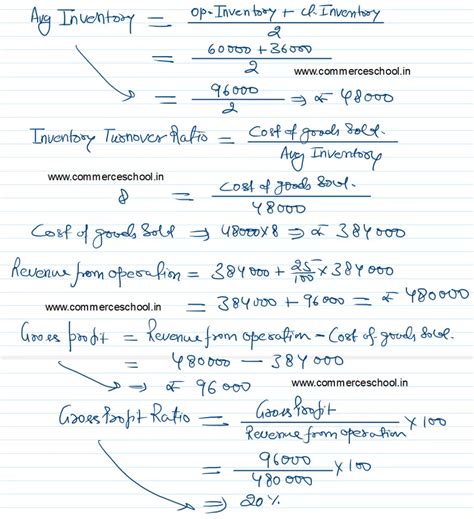 Avg Inventory = Op. Inventory + Cl. Inventory / 2
= 60000 + 36000 / 2
www.commerceschool.in
= 96000 / 2 ⇒ ₹ 48000
Inventory Turnover Ratio = Cost of goods Sold. / Avg Inventory
www.commerceschool.in
8 = Cost of goods Sold. / 48000
Cost of goods Sold ⇒ 48000x8 ⇒ ₹ 384000
Revenue from operation = 384000 + 25/100 x 384000
www.commerceschool.in
= 384000 + 96000 = ₹ 480000
Gross profit = Revenue from operation - Cost of goods Sold.
= 480000 — 384000
⇒ ₹ 96000
www.commerceschool.in
Gross Profit Ratio = Gross Profit / Revenue from operation x 100
= 96000 / 480000 x 100
⇒ 20%